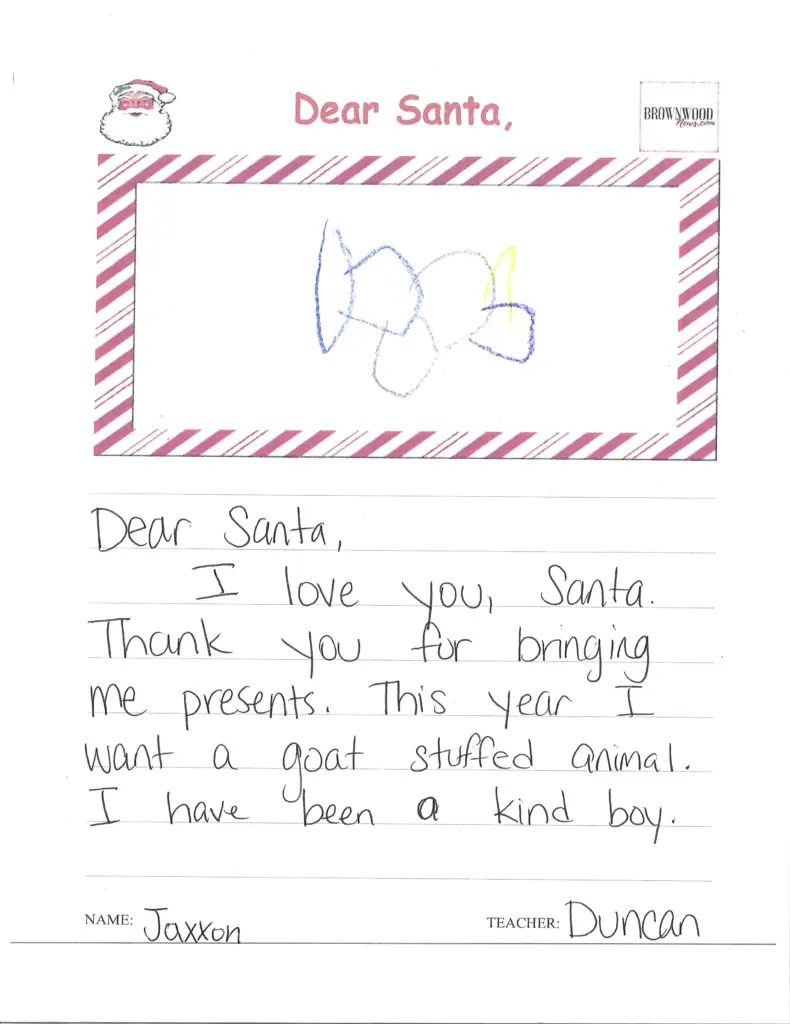 Dear Santa,
BROWNWOOD
News.com
Dear Santa,
I love you, Santa.
Thank you for bringing
me presents. This year I
want a goat stuffed animal.
I have been a kind boy.
NAME: Jaxxon TEACHER: Duncan